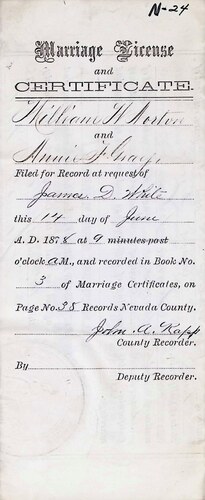 N-24
Marriage License
and
CERTIFICATE.
William H Morton
and
Annie F
Filed for Record at request of
James D. White
this 14 day of June
A. D. 1878 at 9 minutes past
o'clock A.M., and recorded in Book No.
3 of Marriage Certificates, on
Page No. 38 Records Nevada County.
John A. Rapp
County Recorder.
By
Deputy Recorder.